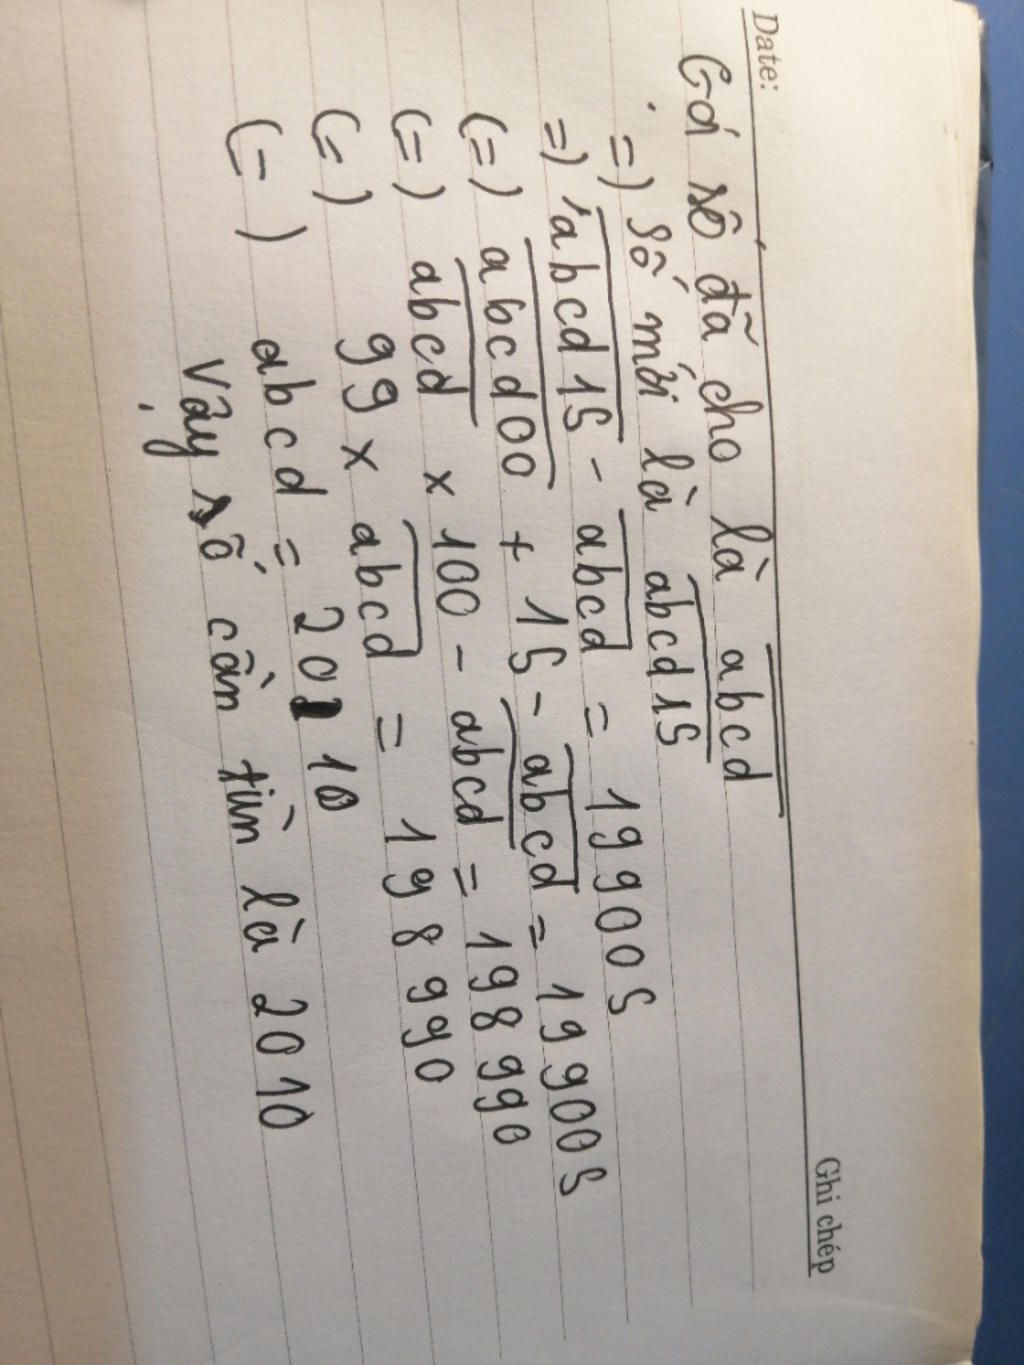 Date:
Ghi chép
Gá số đã cho là abcd
=) số mới là abcd15
=) abcd15 - abcd = 199005
(=) abcd00 + 15 - abcd = 199005
(=) abcd x 100 - abcd = 198990
(=) 99 x abcd = 198990
(=) abcd = 2010
Vậy số cần tìn là 2010